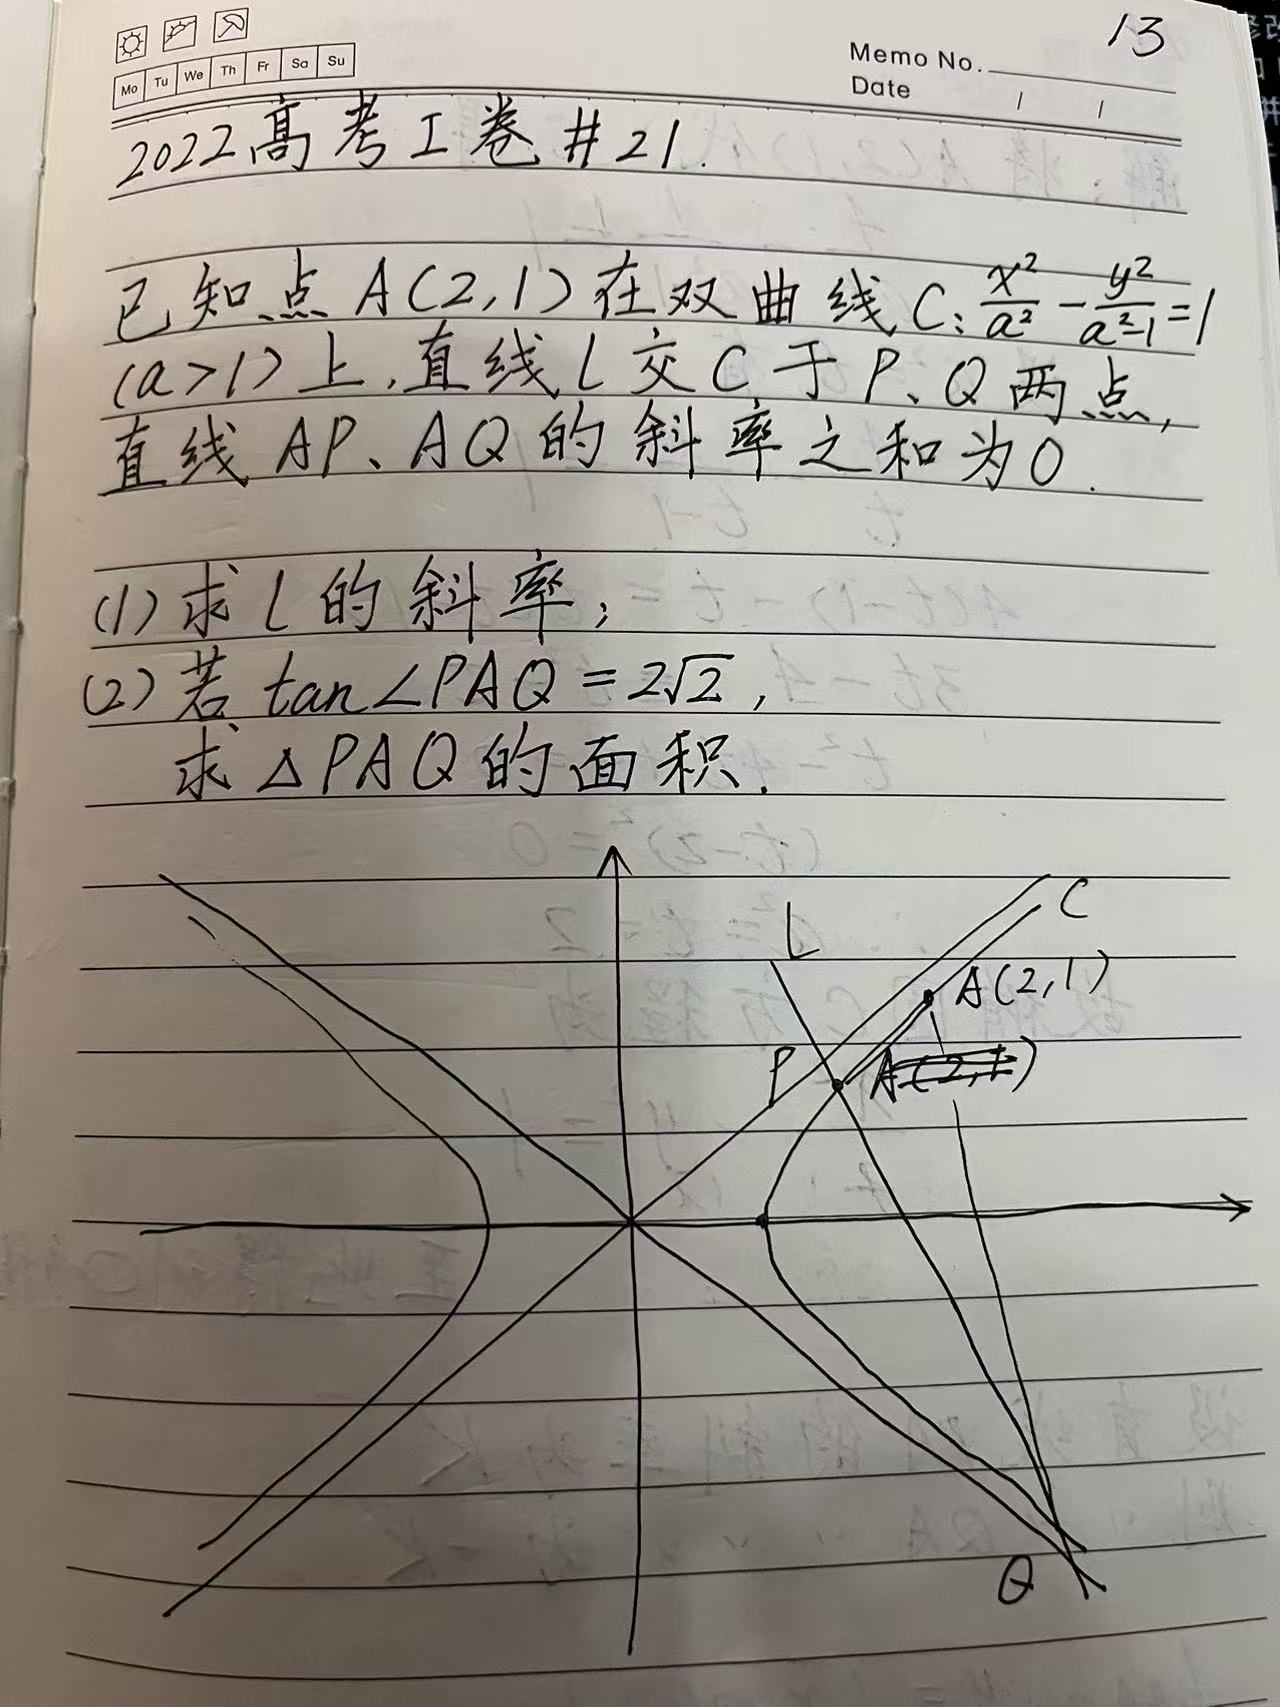 13
Memo No.
Mo Tu We Th Fr Sa Su
Date / /
2022高考I卷#21.
已知点A(2,1)在双曲线C:x²/a² - y²/(a²-1)=1
(a>1)上,直线l交C于P、Q两点,
直线AP、AQ的斜率之和为0.
(1)求l的斜率;
(2)若tan∠PAQ=2√2,
求△PAQ的面积.
l
C
A(2,1)
P
A(2,1)
Q